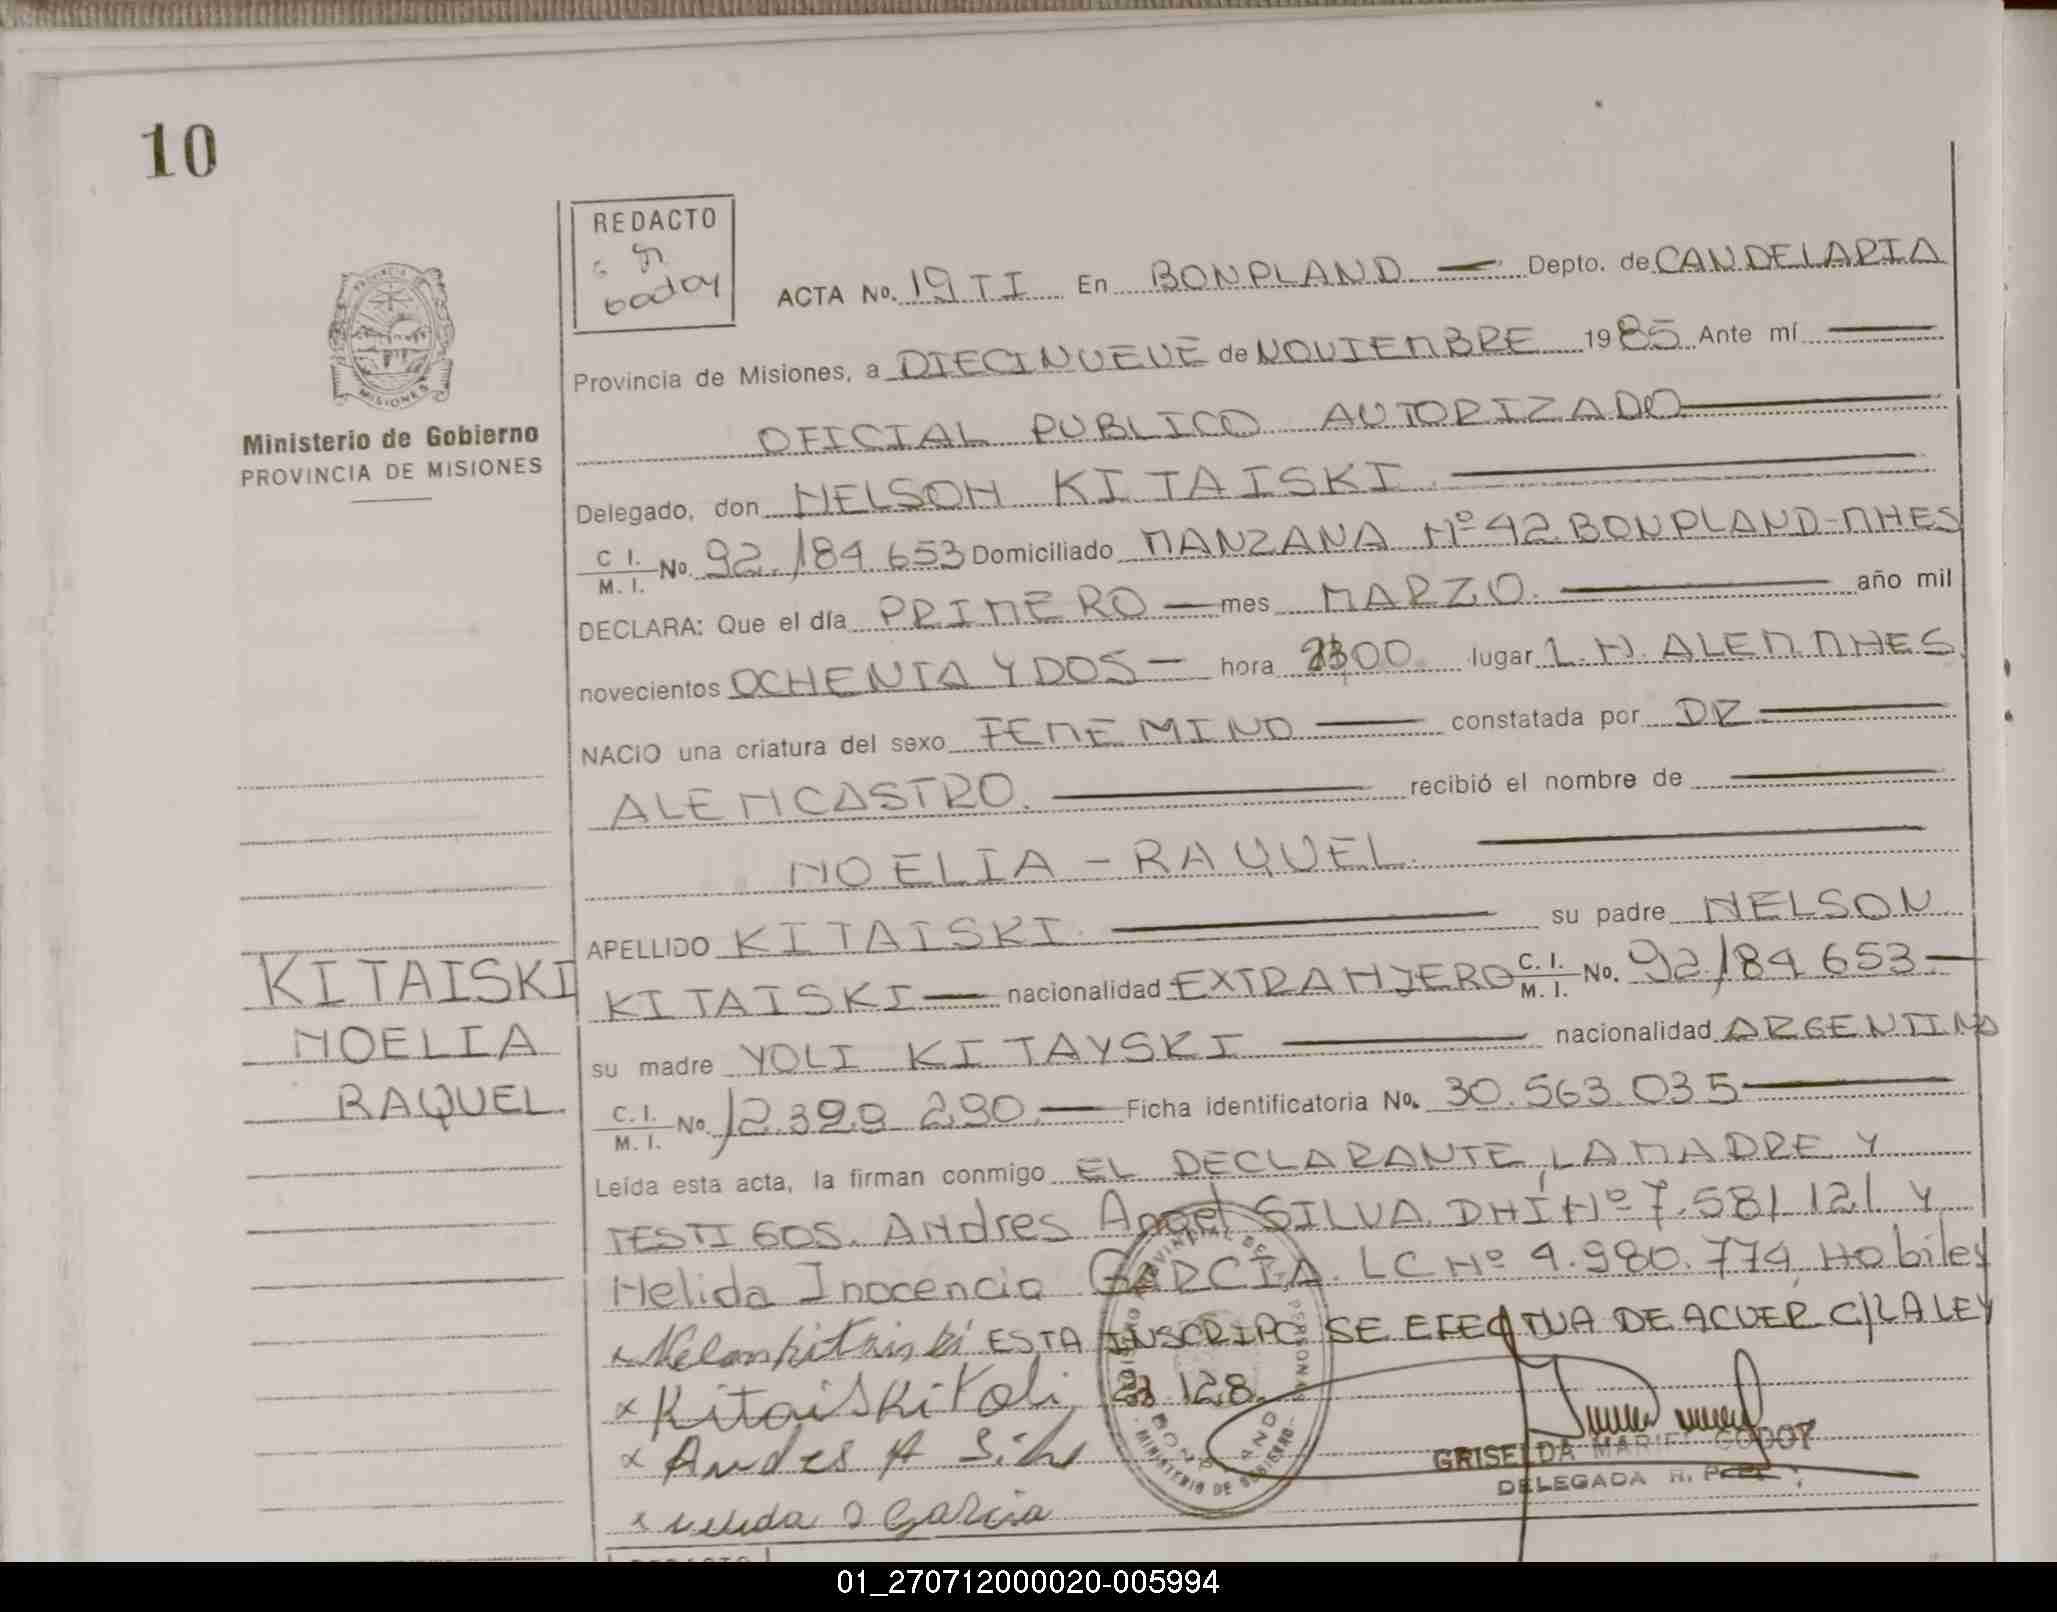 10
REDACTO
Godoy
ACTA No. 19 TI En BONPLAND Depto. de CANDELARIA
Provincia de Misiones, a DIECINUEVE de NOVIEMBRE 1985 Ante mí
OFICIAL PUBLICO AUTORIZADO
Ministerio de Gobierno
PROVINCIA DE MISIONES
Delegado, don NELSON KITAISKI
C. I. / M. I. No. 92.184.653 Domiciliado MANZANA Nº 42 BONPLAND-MNES
DECLARA: Que el día PRIMERO mes MARZO año mil
novecientos OCHENTA Y DOS hora lugar L.N. ALEM MNES
NACIO una criatura del sexo FEMEMINO constatada por DR
ALEMCASTRO. recibió el nombre de
NOELIA - RAQUEL.
APELLIDO KITAISKI su padre NELSON
KITAISKI nacionalidad EXTRANJERO C. I. / M. I. No. 92.184.653
su madre YOLI KITAYSKI nacionalidad ARGENTINA
C. I. / M. I. No. 12.399.290 Ficha identificatoria No. 30.563.035
Leída esta acta, la firman conmigo EL DECLARANTE, LA MADRE Y
TESTIGOS. Andres Angel SILVA DNI Nº 7.581.121 Y
Nelida Inocencia GARCIA. LC Nº 4.980.774, Habiles
Nelson Kitaiski ESTA INSCRIPC SE EFECTUA DE ACUER C/LA LEY
x Kitaiski Yoli 128.
x Andres A Silv
x Nelida I Garcia
GRISELDA MARIEL GODOY
DELEGADA R. P.
MINISTERIO DE GOBIERNO
BONPLAND
KITAISKI
NOELIA
RAQUEL.
01_270712000020-005994